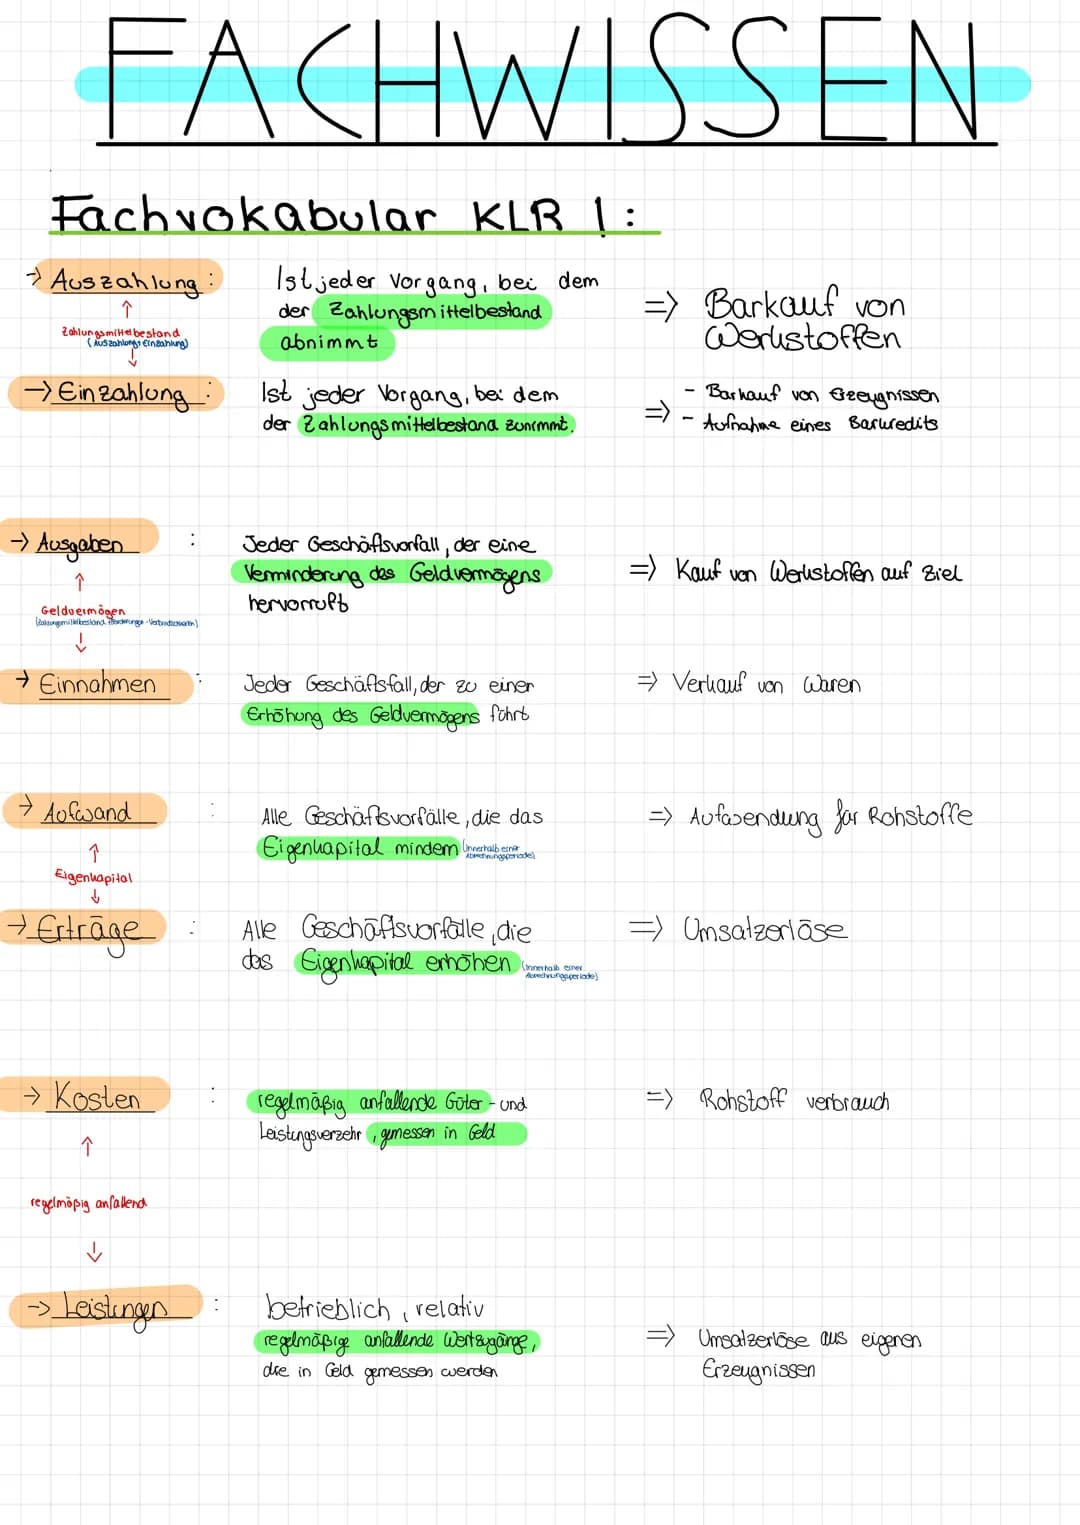 FACHWISSEN
Fachvokabular KLR 1:
→ Auszahlung :
Ist jeder Vorgang, bei dem
der Zahlungsmittelbestand
abnimmt
=> Barkauf von
Werkstoffen
↑
Zahlungsmittelbestand
(Auszahlung, Einzahlung)
↓
→ Einzahlung :
Ist jeder Vorgang, bei dem
der Zahlungsmittelbestand zunimmt.
=> - Barkauf von Erzeugnissen
- Aufnahme eines Barkredits
→ Ausgaben :
Jeder Geschäftsvorfall, der eine
Verminderung des Geldvermögens
hervorruft
=> Kauf von Werkstoffen auf Ziel
↑
Geldvermögen
(Zahlungsmittelbestand + Forderungen - Verbindlichkeiten)
↓
→ Einnahmen :
Jeder Geschäftsfall, der zu einer
Erhöhung des Geldvermögens führt
=> Verkauf von Waren
→ Aufwand :
Alle Geschäftsvorfälle, die das
Eigenkapital mindern (innerhalb einer
Abrechnungsperiode)
=> Aufwendung für Rohstoffe
↑
Eigenkapital
↓
→ Erträge :
Alle Geschäftsvorfälle, die
das Eigenkapital erhöhen (innerhalb einer
Abrechnungsperiode)
=> Umsatzerlöse
→ Kosten :
regelmäßig anfallende Güter- und
Leistungsverzehr, gemessen in Geld
=> Rohstoff verbrauch
↑
regelmäßig anfallend
↓
→ Leistungen :
betrieblich, relativ
regelmäßige anfallende Wertzugänge,
die in Geld gemessen werden
=> Umsatzerlöse aus eigenen
Erzeugnissen